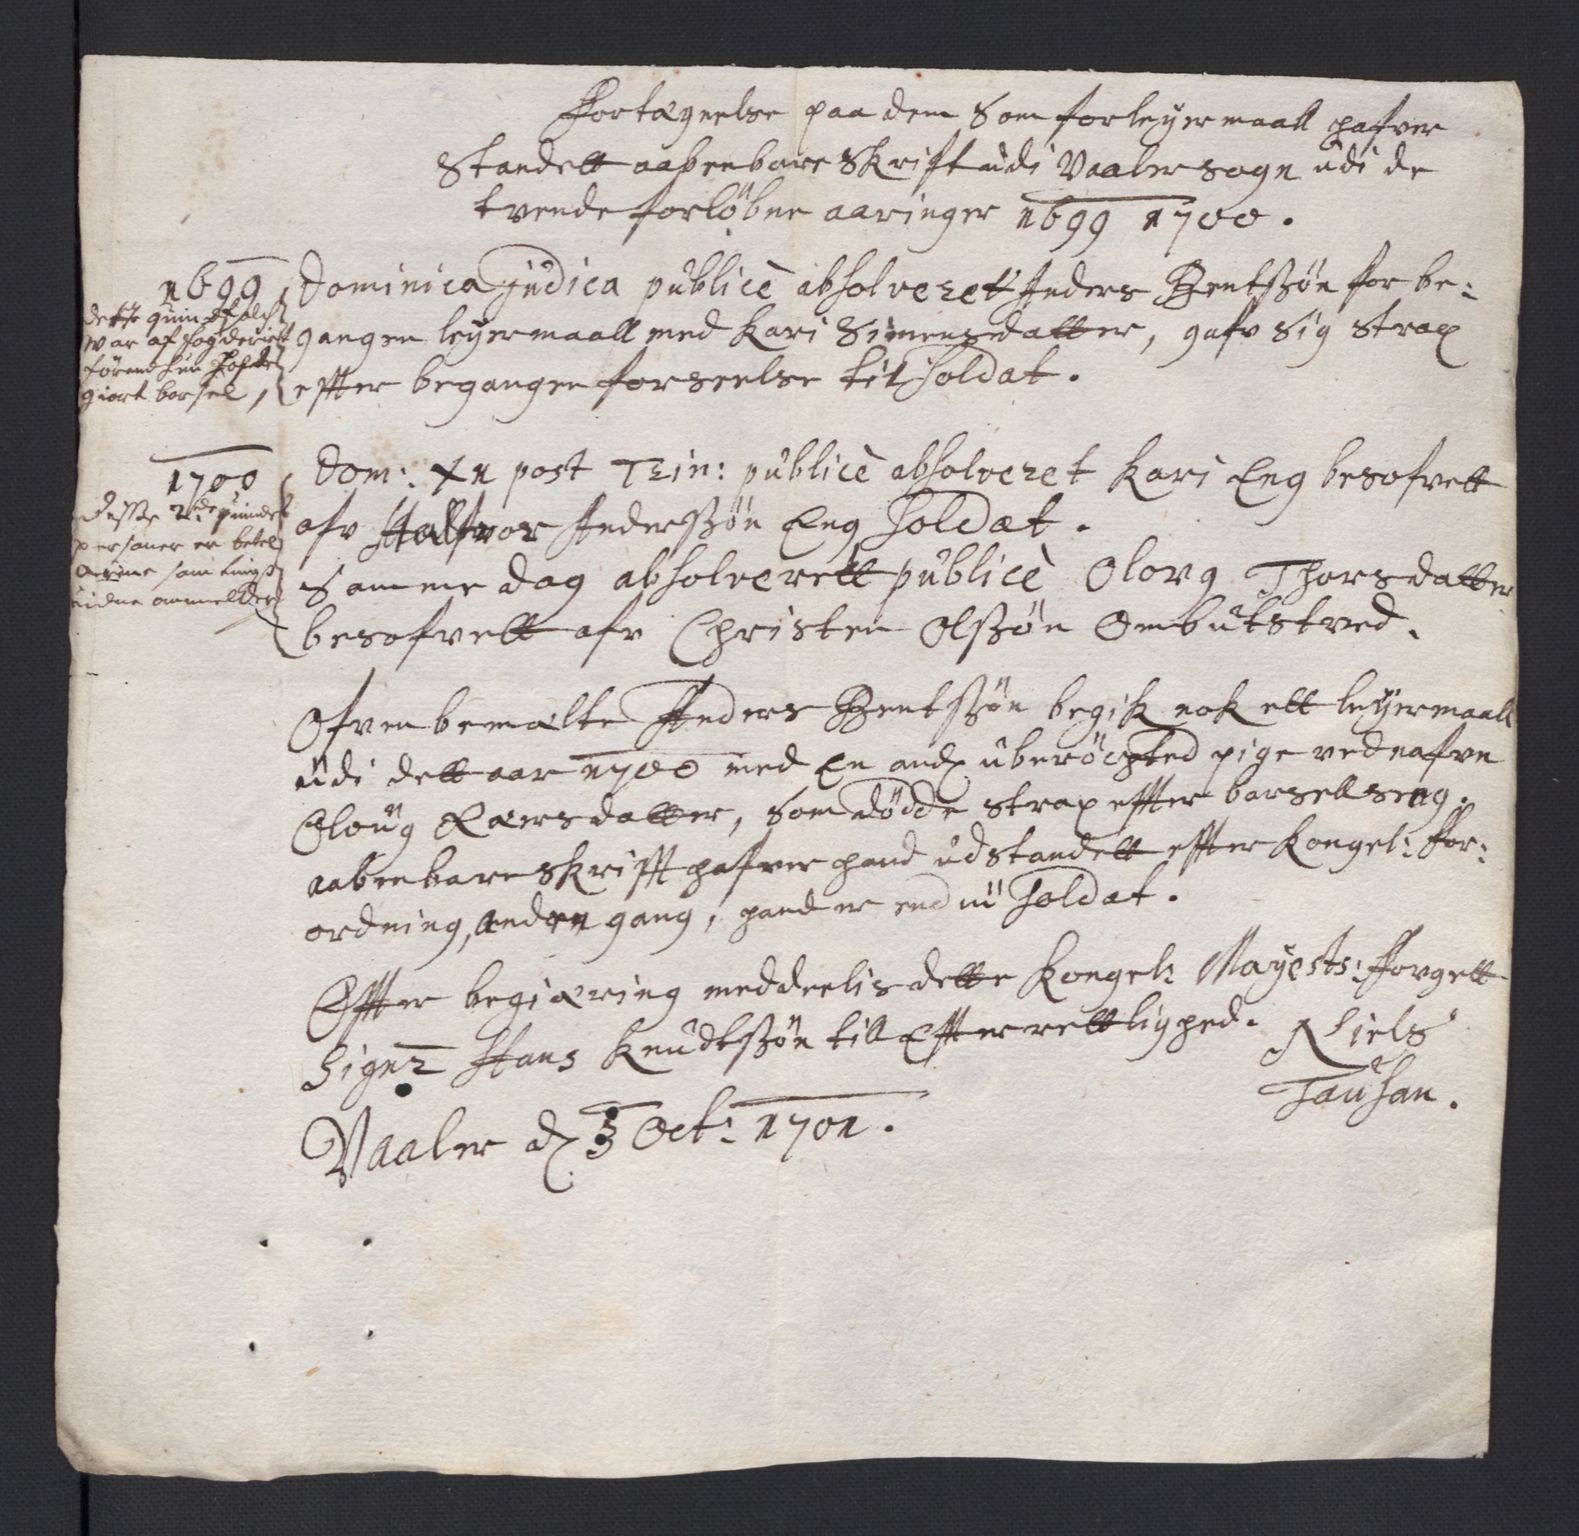 Fortægnelse paa dem Som for leyermaall hafver
Standett aabenbare Skrift udi Vaaler sogn udi de
tvende forløbne aaringer 1699 1700.
1699
Dominica judica publicè absolveret Anders Bentssøn for be-
gangen leyermaall med Kari Simensdatter, gafv sig strax
effter begangen forseelse til Soldat.
dette quindfolch
var af fogderiet
førend hun hafde
giort barsel,
1700
Dom: XII post Trin: publicè absolveret Kari Eng besofvett
afv Halfvor Anderssøn Eng Soldat.
Samme dag absolverett publicè Olovg Thorsdatter
besofvett afv Christen Olssøn Ombutstved.
Disse 2de quindes
personer er
som
anmelder
Ofvenbemælte Anders Bentssøn begik nok ett leyermaall
udi dett aar 1700 med En and uberøcted pige ved nafvn
Oloug Larsdatter, Som dødde strax effter barsellseng.
aabenbare skrifft hafver hand udstandett effter Kongel: For:
ordning, anden gang, hand er end nu Soldat.
Effter begiæring meddeelis dette Kongel: Mayests: Fovgett
Sign: Hans Knudtssøn till Effterrettlighed. Niels
Tausan.
Vaaler d 3 Oct: 1701.